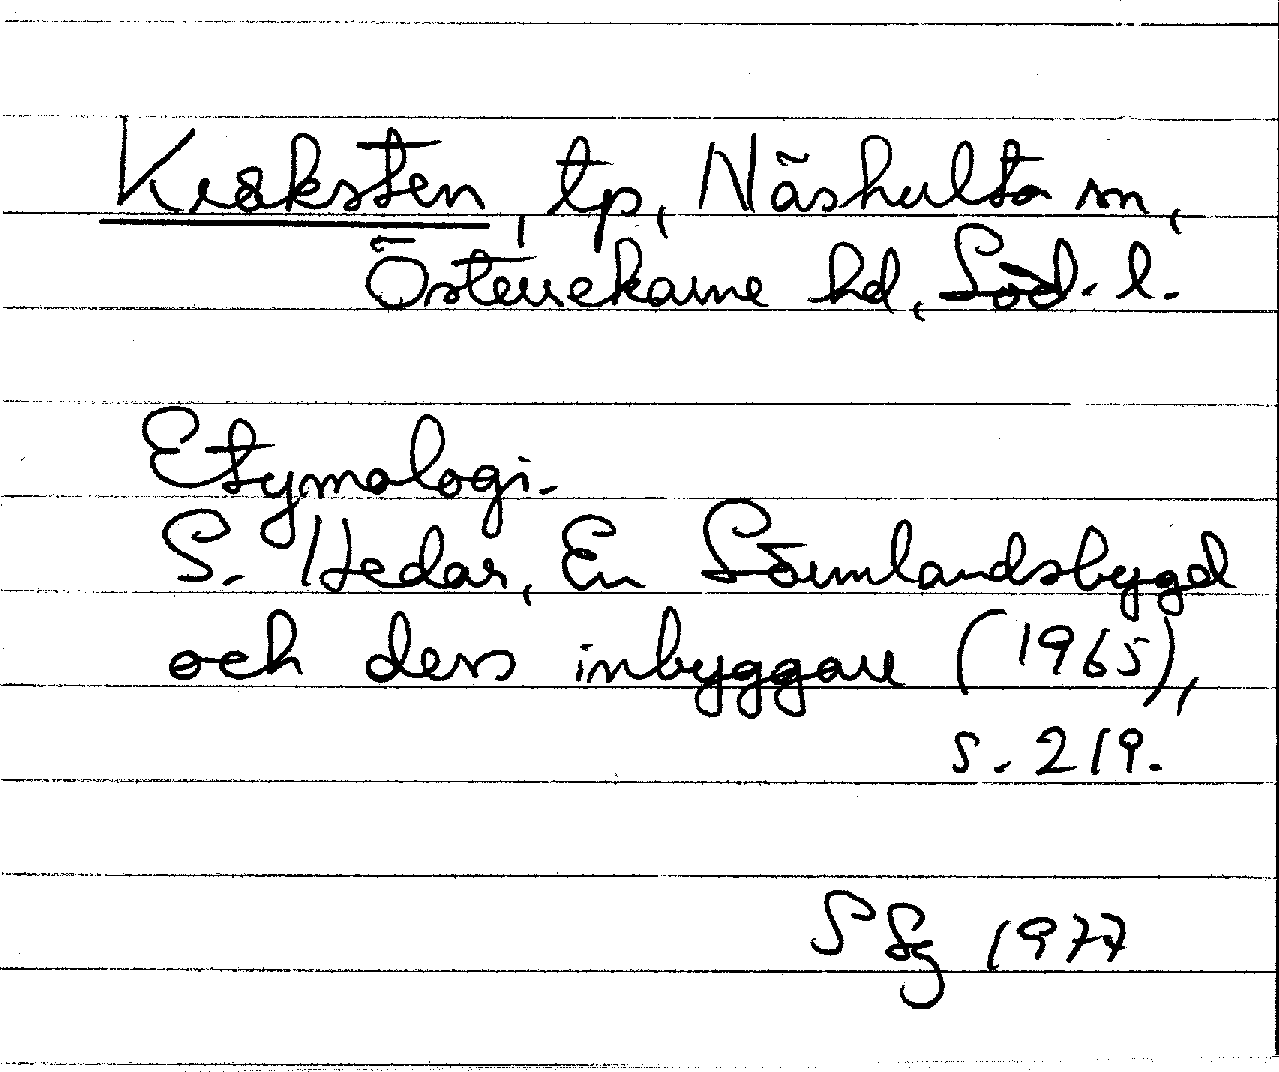 Kråksten, tp, Näshulta sn,
Österrekarne hd, Söd. l.
Etymologi.
S. Hedar, En Sörmlandsbygd
och dess inbyggare (1965),
s. 219.
1977